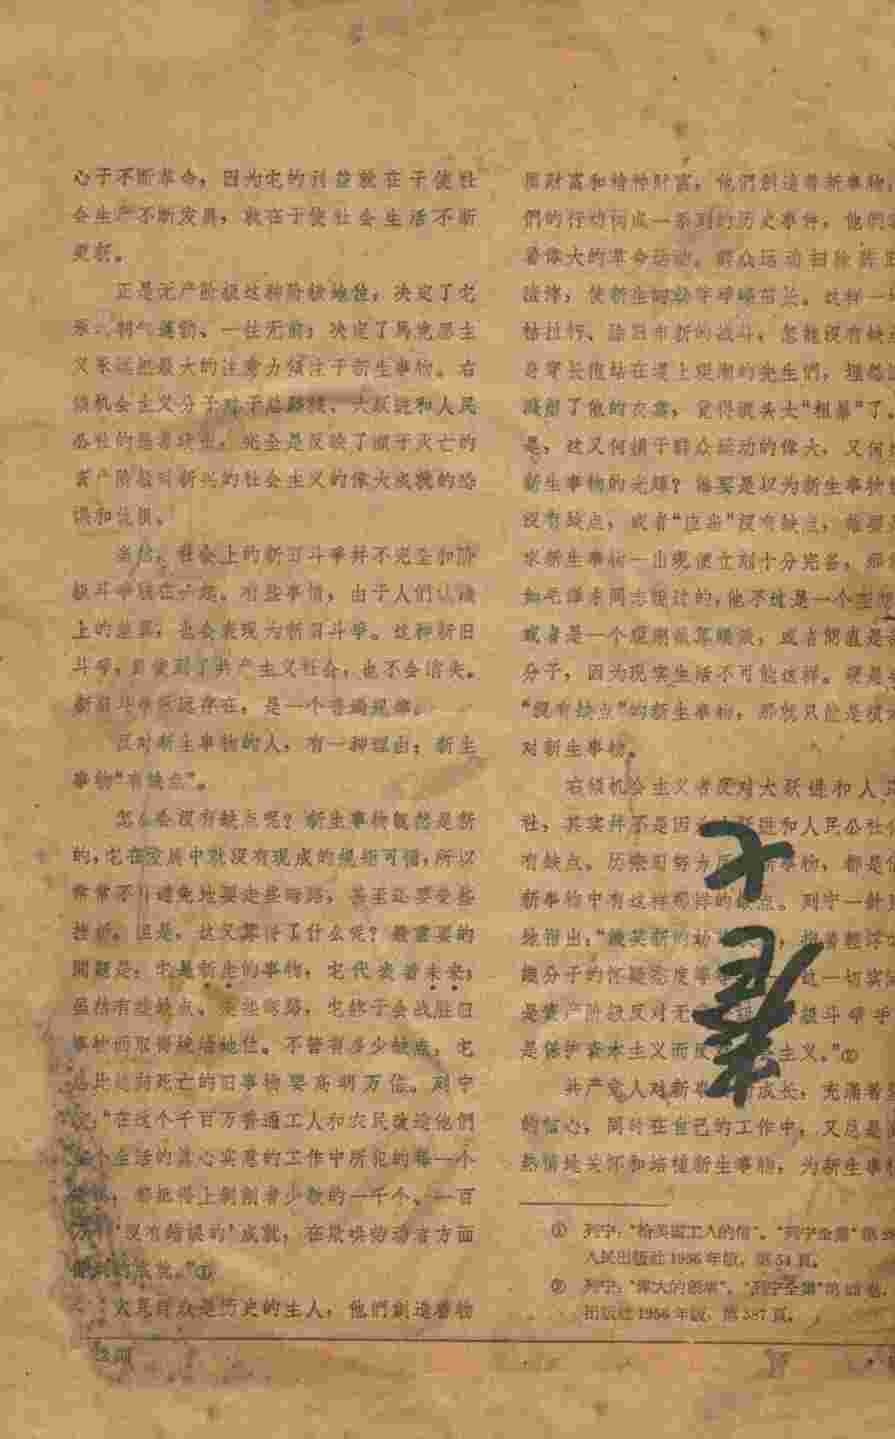 心于不断革命，因为它的利益就在于使社
会生产不断发展，就在于使社会生活不断
更新。
正是无产阶级这种阶级地位，决定了它
气蓬勃、一往无前；决定了馬克思主
义永远把最大的注意力傾注于新生事物。右
傾机会主义分子对于总路綫、大跃进和人民
公社的恶毒攻击，完全是反映了瀕于灭亡的
資产阶級对新兴的社会主义的偉大成就的恐
惧和仇恨。
当然，社会上的新旧斗爭并不完全和阶
級斗爭联在一起。有些事情，由于人們认識
上的差异，也会表现为新旧斗爭。这种新旧
斗爭，即使到了共产主义社会，也不会消失。
新旧斗爭永远存在，是一个普遍规律。
反对新生事物的人，有一种理由：新生
事物“有缺点”。
怎么会没有缺点呢？新生事物既然是新
的，它在发展中就没有现成的规矩可循，所以
常常不可避免地要走些弯路，甚至还要受些
挫折。但是，这又算得了什么呢？最重要的
問題是：它是新生的事物，它代表着未来；
虽然有些缺点、走些弯路，它終于会战胜旧
事物而取得統治地位。不管有多少缺点，它
总比趋向死亡的旧事物要高明万倍。列宁
說：“在这个千百万普通工人和农民改造他們
整个生活的真心实意的工作中所犯的每一个
錯誤，都抵得上剝削者少数的一千个、一百
万个‘没有錯誤的’成就，在欺哄劳动者方面
的成就。”①
人民群众是历史的主人，他們創造着物
质財富和精神財富，他們創造着新事物，
們的行动构成一系列的历史事件，他們
着偉大的革命运动。群众运动扫除陈旧
渣滓，使新生事物茁长。这样一
枯拉朽、除旧布新的战斗，怎能没有缺点
身穿长袍站在堤上观潮的先生們，埋怨
溅湿了他的衣裳，觉得浪头太“粗暴”了。
是，这又何損于群众运动的偉大，又何
新生事物的光輝？誰要是以为新生事物
没有缺点，或者“应当”没有缺点，誰要
求新生事物一出现便立刻十分完备，那
如毛澤东同志說过的，他不过是一个空想
或者是一个观潮派算賬派，或者简直是
分子，因为现实生活不可能这样。硬是
“没有缺点”的新生事物，那就只能是
对新生事物。
右傾机会主义者反对大跃进和人民
社，其实并不是因为大跃进和人民公社
有缺点。历来图努力反对新事物，都是
新事物中有这样那样的缺点。列宁一針
地指出：“譏笑新的幼，抱着輕浮
識分子的怀疑态度等等——这一切实
是資产阶級反对无产阶級的阶级斗爭手
是保护資本主义而反对社会主义。”②
共产党人对新事物的成长，充滿着
的信心，同时在自己的工作中，又总是
热情地关怀和培植新生事物，为新生事
① 列宁：“給美国工人的信”。“列宁全集”第
人民出版社1956年版，第54頁。
② 列宁：“偉大的創举”。“列宁全集”第
出版社1956年版，第387頁。